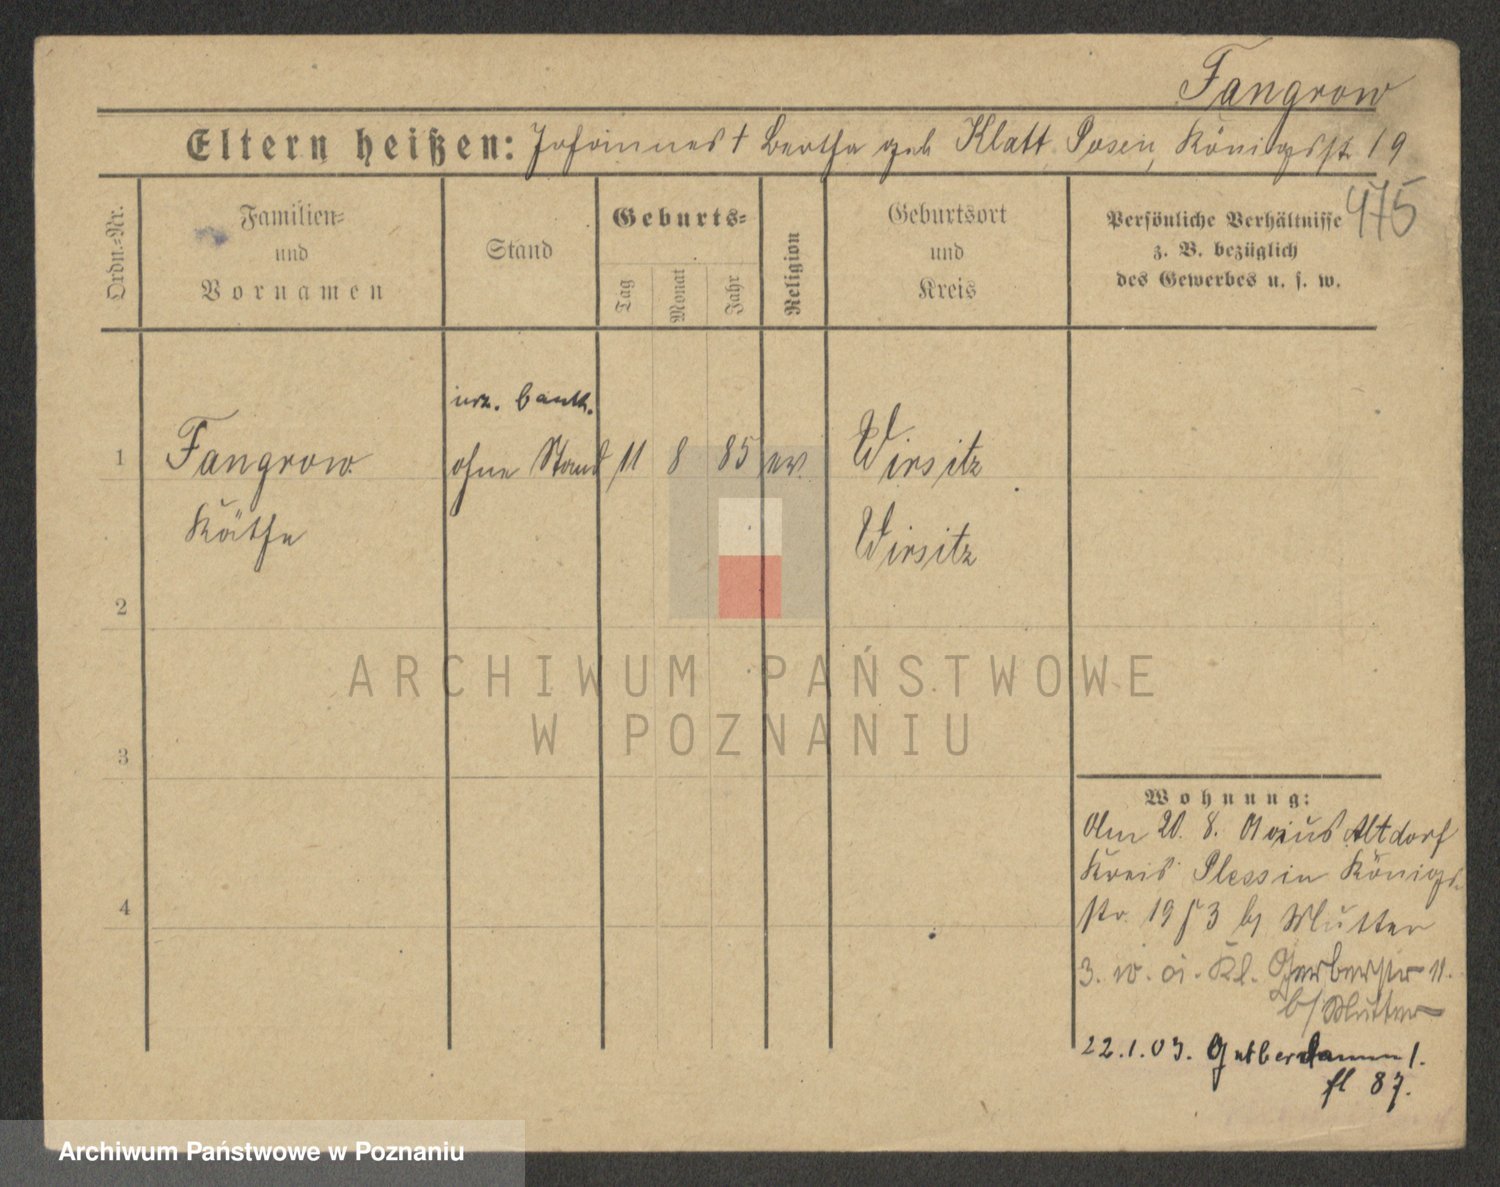 Fangrow
Eltern heißen: Johannes † Bertha geb Klatt Posen, Königsstr 19
475
Ordn.-Nr.
Familien-
und
Vornamen
Stand
Geburts-
Tag
Monat
Jahr
Religion
Geburtsort
und
Kreis
Persönliche Verhältnisse
z. B. bezüglich
des Gewerbes u. s. w.
1
Fangrow
ohne Stand
11 8 85 ev.
Wirsitz
Käthe
Wirsitz
2
3
4
Wohnung:
Am 20. 8. aus Altdorf
Kreis Pless in Königs-
str. 19 b/ Mutter
3. Kl. Gerberstr 11.
b/ Mutter
22.1.03. Gerberdamm 1.
87.
ARCHIWUM PAŃSTWOWE
W POZNANIU
Archiwum Państwowe w Poznaniu